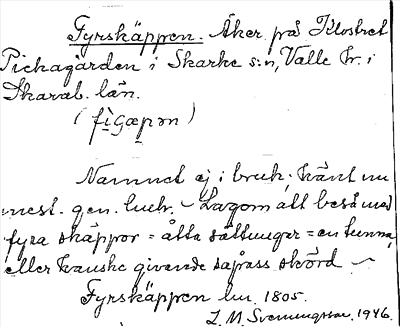 Fyrskäppen. Åker på Klostret
Pickagården i Skarke s:n, Valle hr. i
Skarab. län.
(fi̱Gæpən)
Namnet ej i bruk; känt nu
mest. gen. lucht. – Lagom att beså med
fyra skäppor = åtta sättungar = en tunna,
eller kanske givande såpass skörd –
Fyrskäppen lm. 1805.
L. M. Svenungsson. 1946.